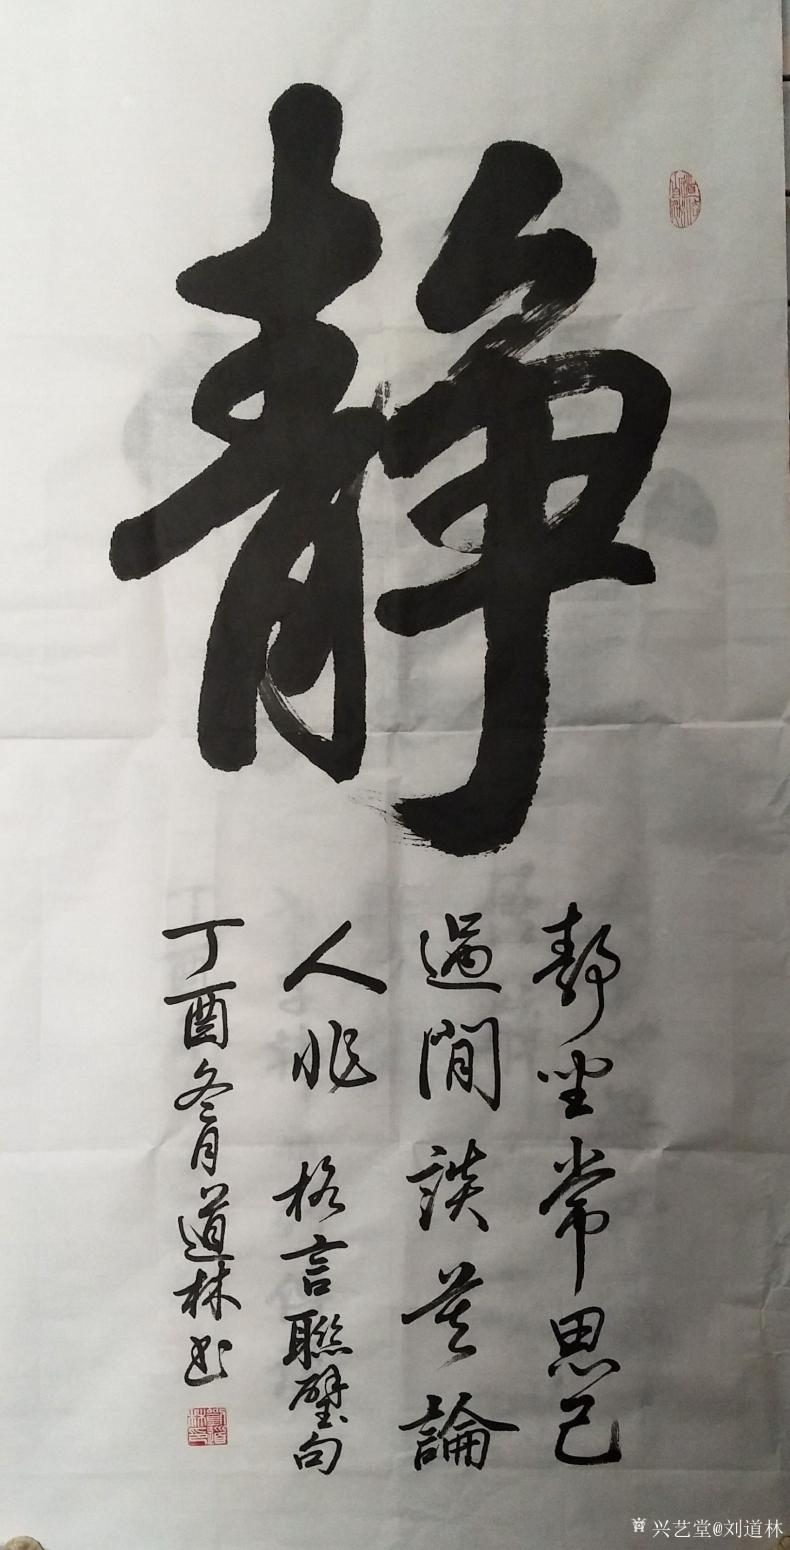 静
靜坐常思己
過閒談莫論
人非 格言聯璧句
丁酉冬月道林书
兴艺堂@刘道林